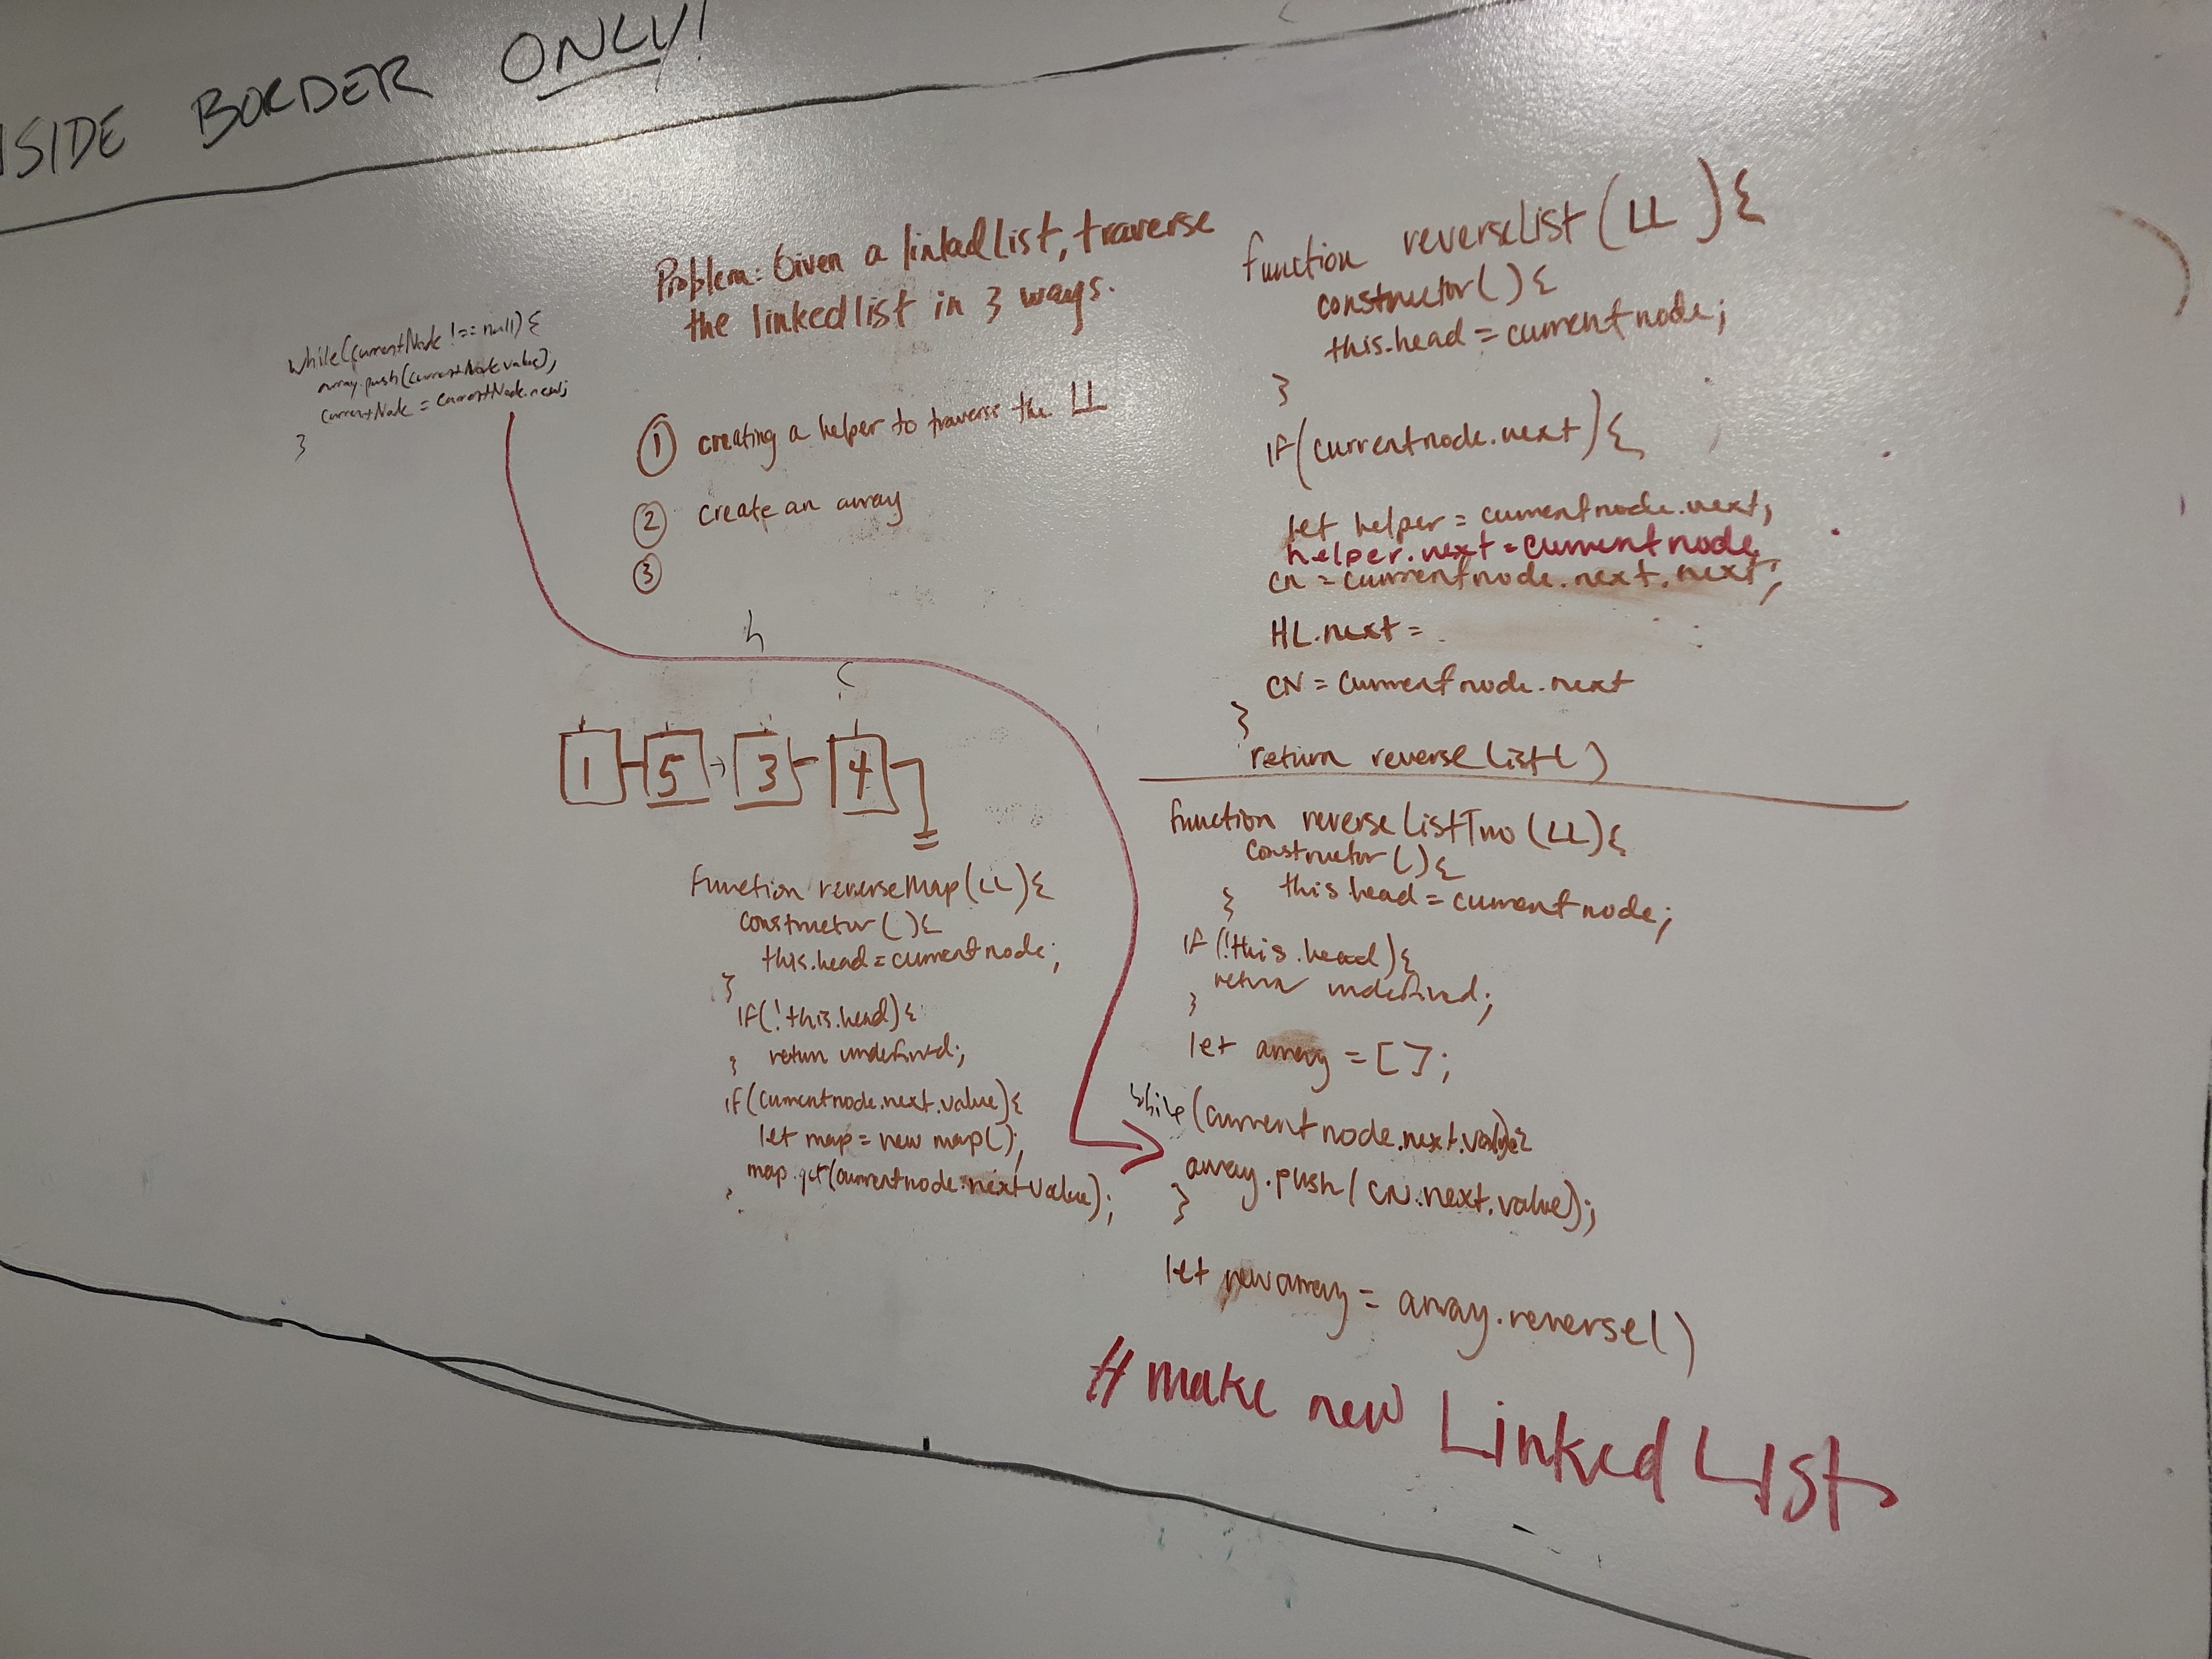 NSIDE BORDER ONLY!
while(currentNode !== null) {
array.push(currentNode.value);
currentNode = currentNode.next;
}
Problem: Given a linkedList, traverse
the linkedlist in 3 ways.
① creating a helper to traverse the LL
② create an array
③
h
c
1 5 3 4
function reverseMap(LL){
constructor(){
this.head = currentnode;
}
if(!this.head){
return undefined;
}
if(currentnode.next.value){
let map = new map();
map.get(currentnode.next.value);
}
function reverseList(LL){
constructor(){
this.head = currentnode;
}
if(currentnode.next){
let helper = currentnode.next;
helper.next = currentnode
CN = currentnode.next.next;
HL.next =
CN = currentnode.next
}
return reverseList()
function reverseListTwo(LL){
constructor(){
this.head = currentnode;
}
if(!this.head){
return undefined;
}
let array = [];
while(currentnode.next.value){
array.push(CN.next.value);
}
let newarray = array.reverse()
# make new Linked List